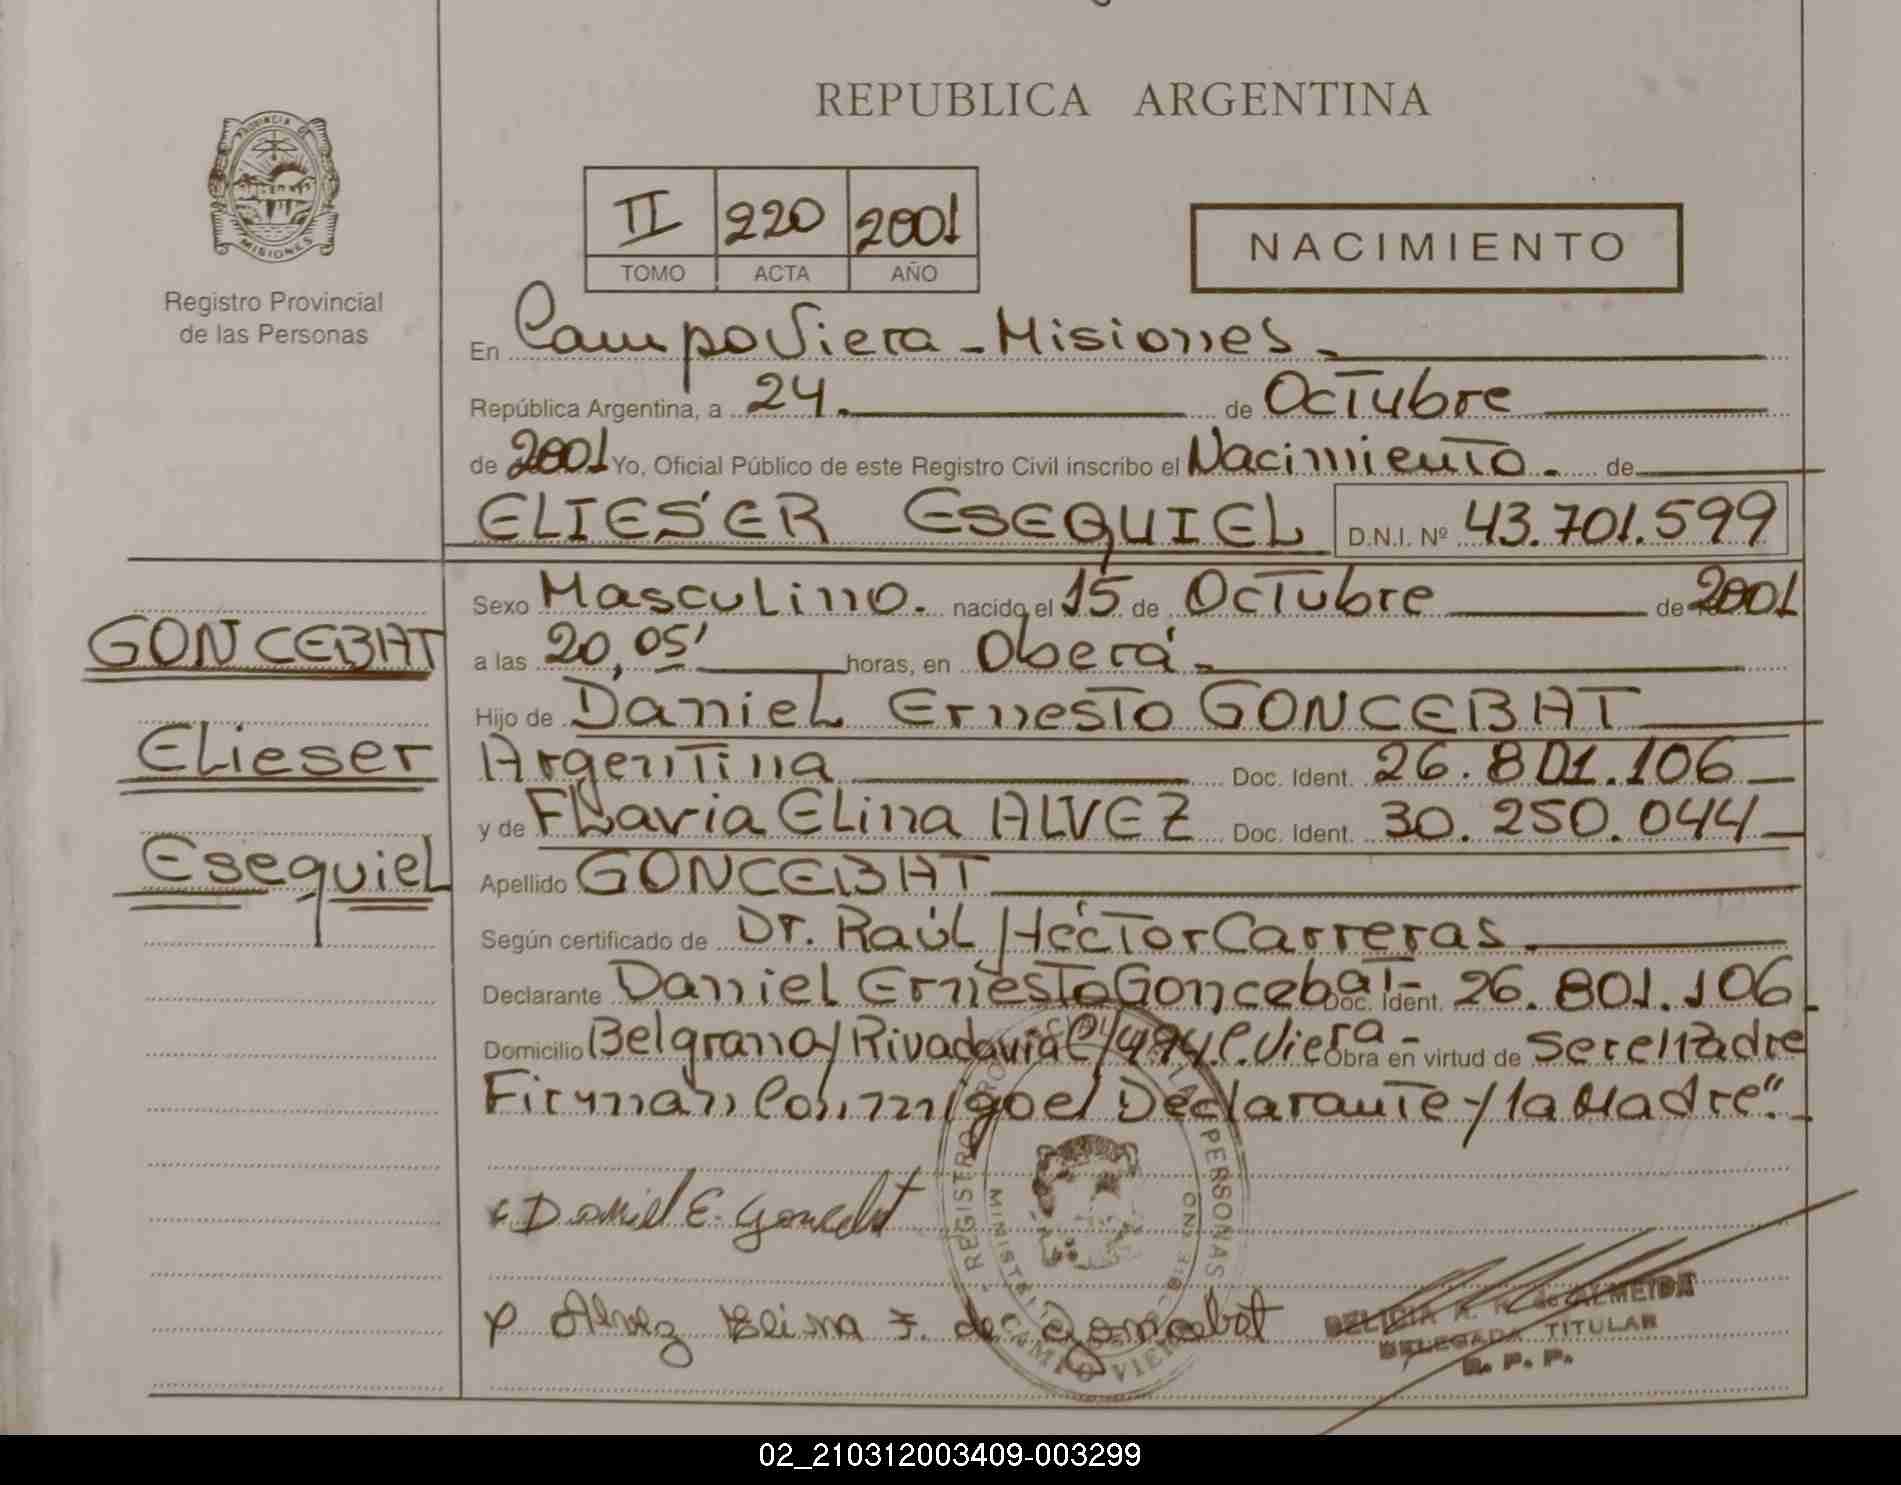 REPUBLICA ARGENTINA
PROVINCIA DE
MISIONES
Registro Provincial
de las Personas
II 220 2001
TOMO ACTA AÑO
NACIMIENTO
En Campo Viera - Misiones -
República Argentina, a 24. de Octubre
de 2001 Yo, Oficial Público de este Registro Civil inscribo el Nacimiento. de
ELIESER ESEQUIEL D.N.I. Nº 43.701.599
Sexo Masculino. nacido el 15 de Octubre de 2001
a las 20,05' horas, en Oberá -
Hijo de Daniel Ernesto GONCEBAT
Argentina Doc. Ident. 26.801.106
y de Flavia Elina ALVEZ Doc. Ident. 30.250.044
Apellido GONCEBAT
Según certificado de Dr. Raúl Héctor Carreras
Declarante Daniel Ernesto Goncebat - Doc. Ident. 26.801.106
Domicilio Belgrano y Rivadavia C. Viera - Obra en virtud de Ser el Padre
Firman Conmigo el Declarante y la Madre". -
GONCEBAT
Elieser
Esequiel
Daniel E. Goncebat
Alvez Elina F. de Goncebat
REGISTRO LAS PERSONAS
CAMPO VIERA
DELICIA de ALMEIDA
DELEGADA TITULAR
R. P. P.
02_210312003409-003299